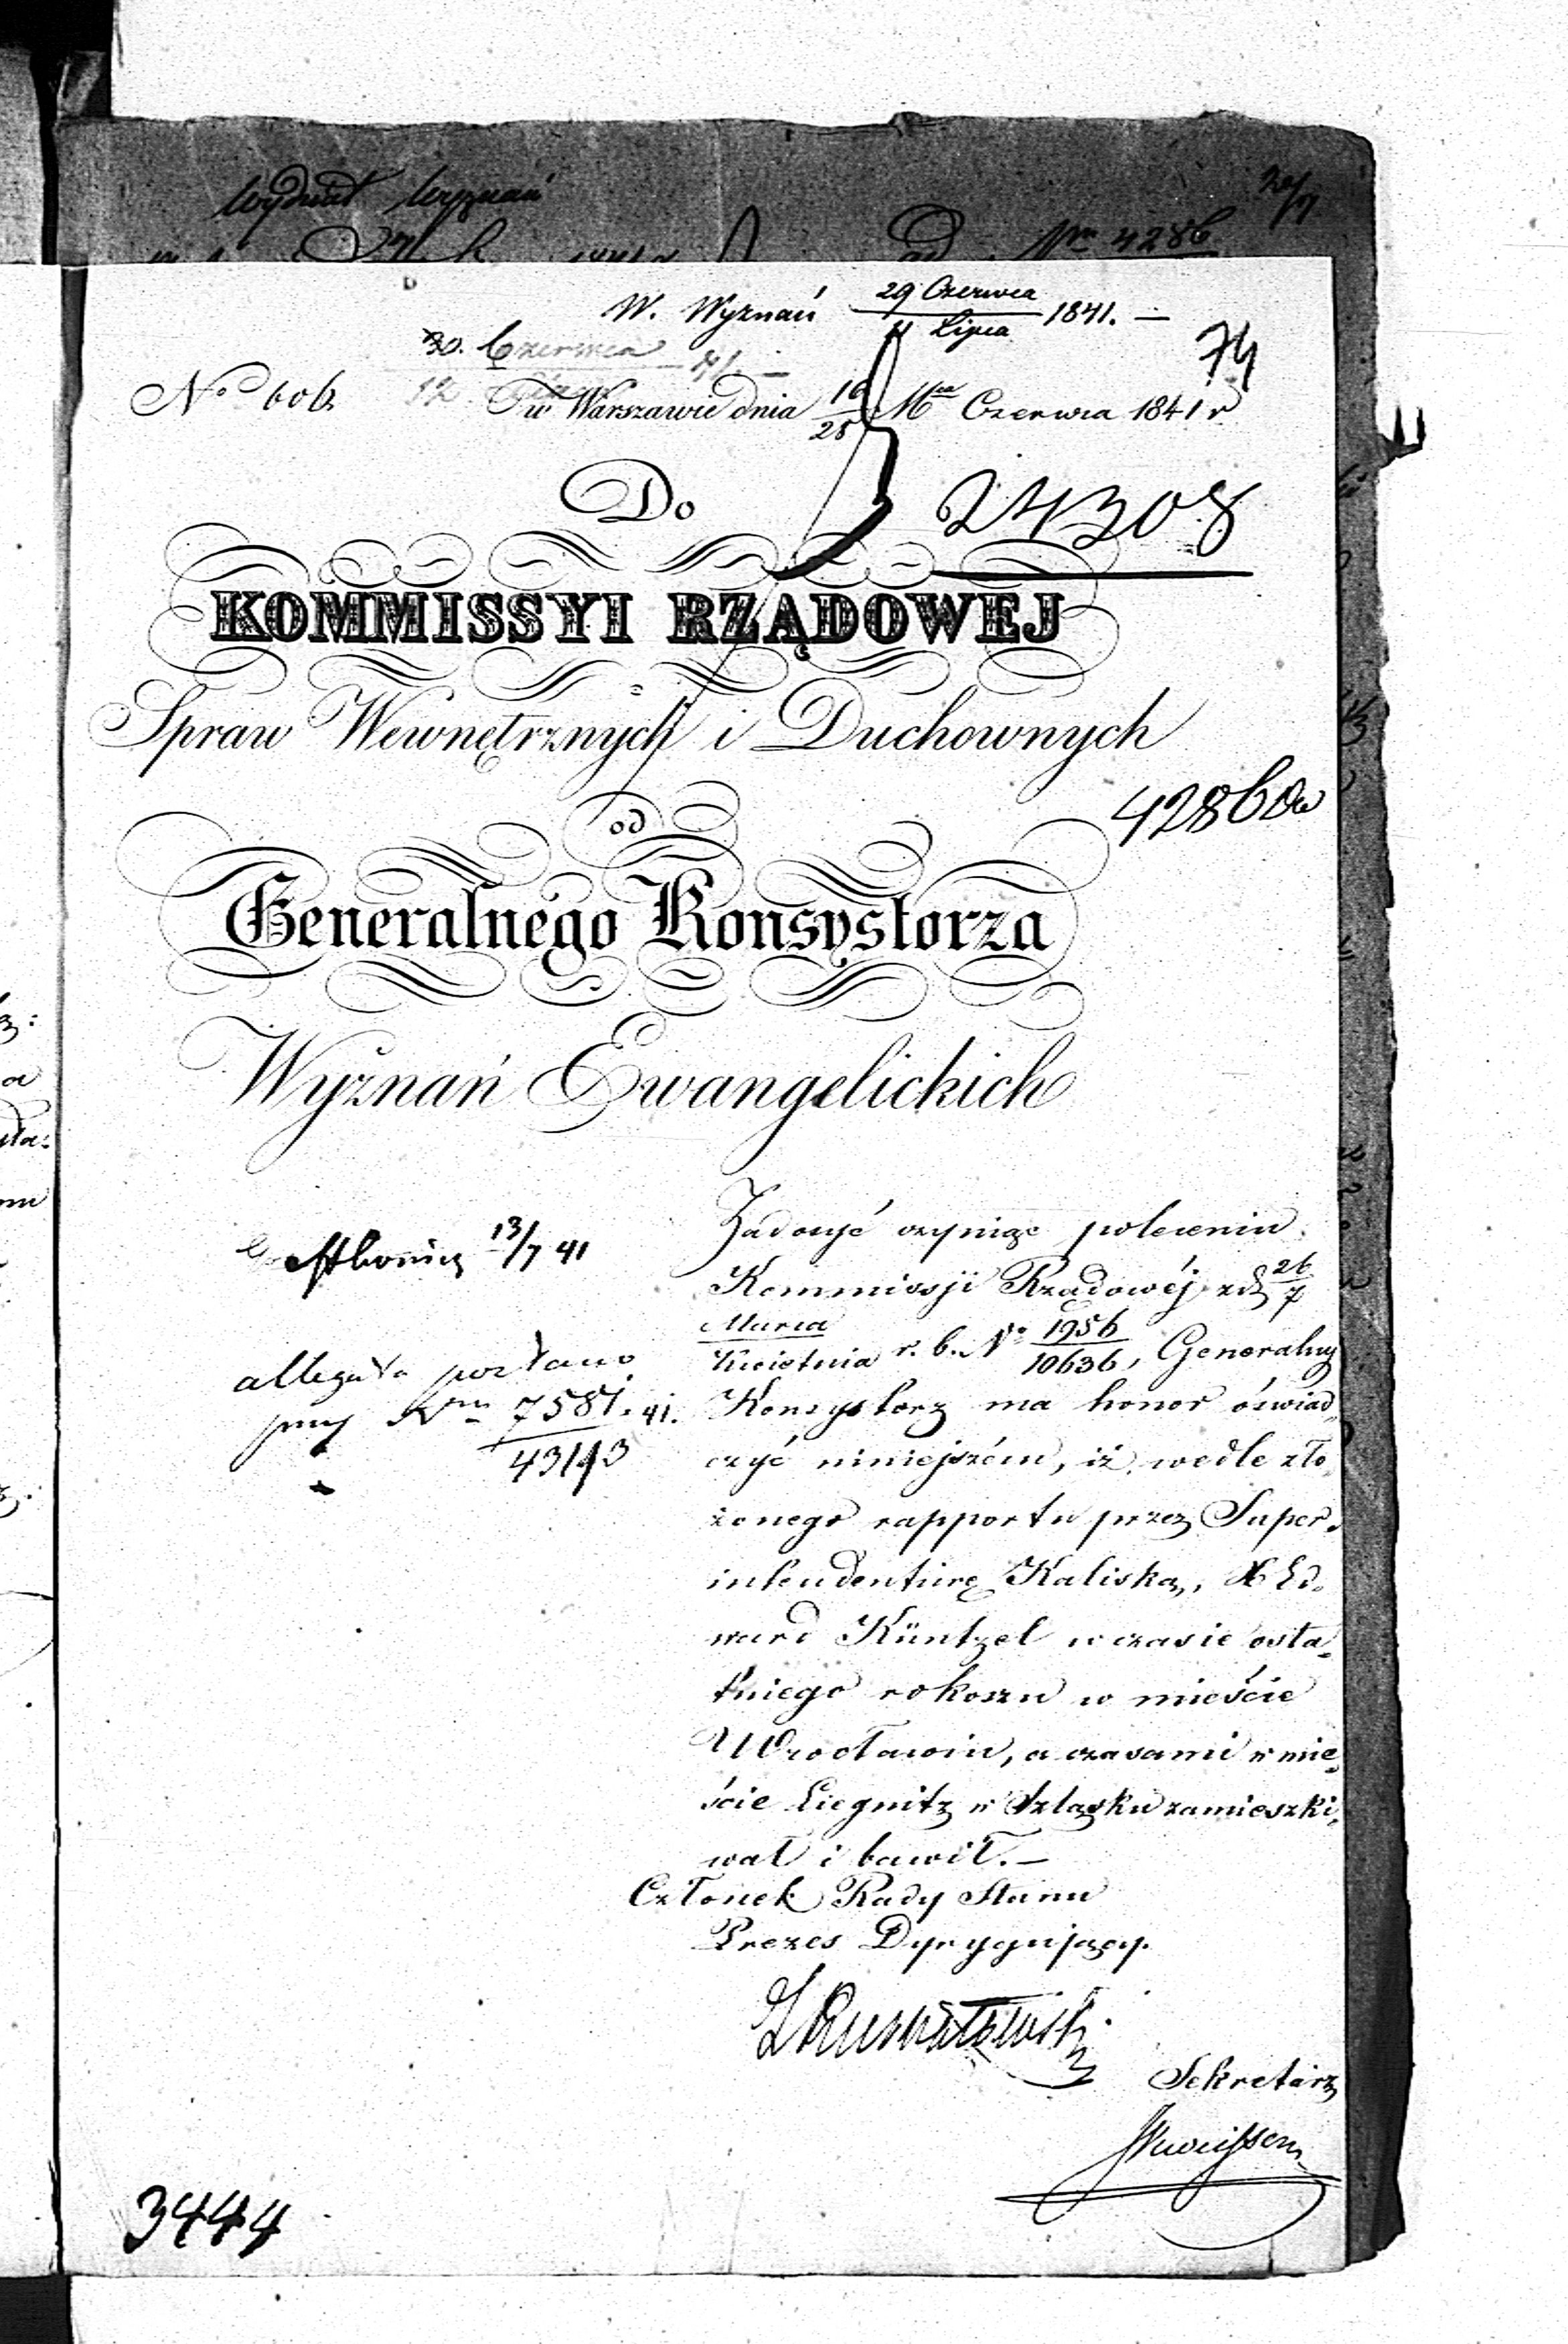 Wydział Wyznań
Nro 4286
W. Wyznań 29 Czerwca / 11 Lipca 1841. —
30. Czerwca
12 41 —
74
No 606.
w Warszawie dnia 16/28 Mca Czerwca 1841 r
Do
24308
KOMMISSYI RZĄDOWEJ
Spraw Wewnętrznych i Duchownych
4286
od
Generalnego Konsystorza
Wyznań Ewangelickich
13/7 41
allegata
przy Nrze 7581. 41.
43143
Zadosyć czyniąc poleceniu
Kommissji Rządowéj z d. 26/7
Marca/Kwietnia r. b. No 1956/10636, Generalny
Konsystorz ma honor oświad-
czyć niniejszém, iż wedle zło-
żonego rapportu przez Super-
intendenturę Kaliską, X Ed-
ward Küntzel w czasie osta-
tniego rokoszu w mieście
Wrocławiu, a czasami w mie-
ście Liegnitz w Szląsku zamieszki-
wał i bawił. —
Członek Rady Stanu
Prezes Dyrygujący.
Sekretarz
3444